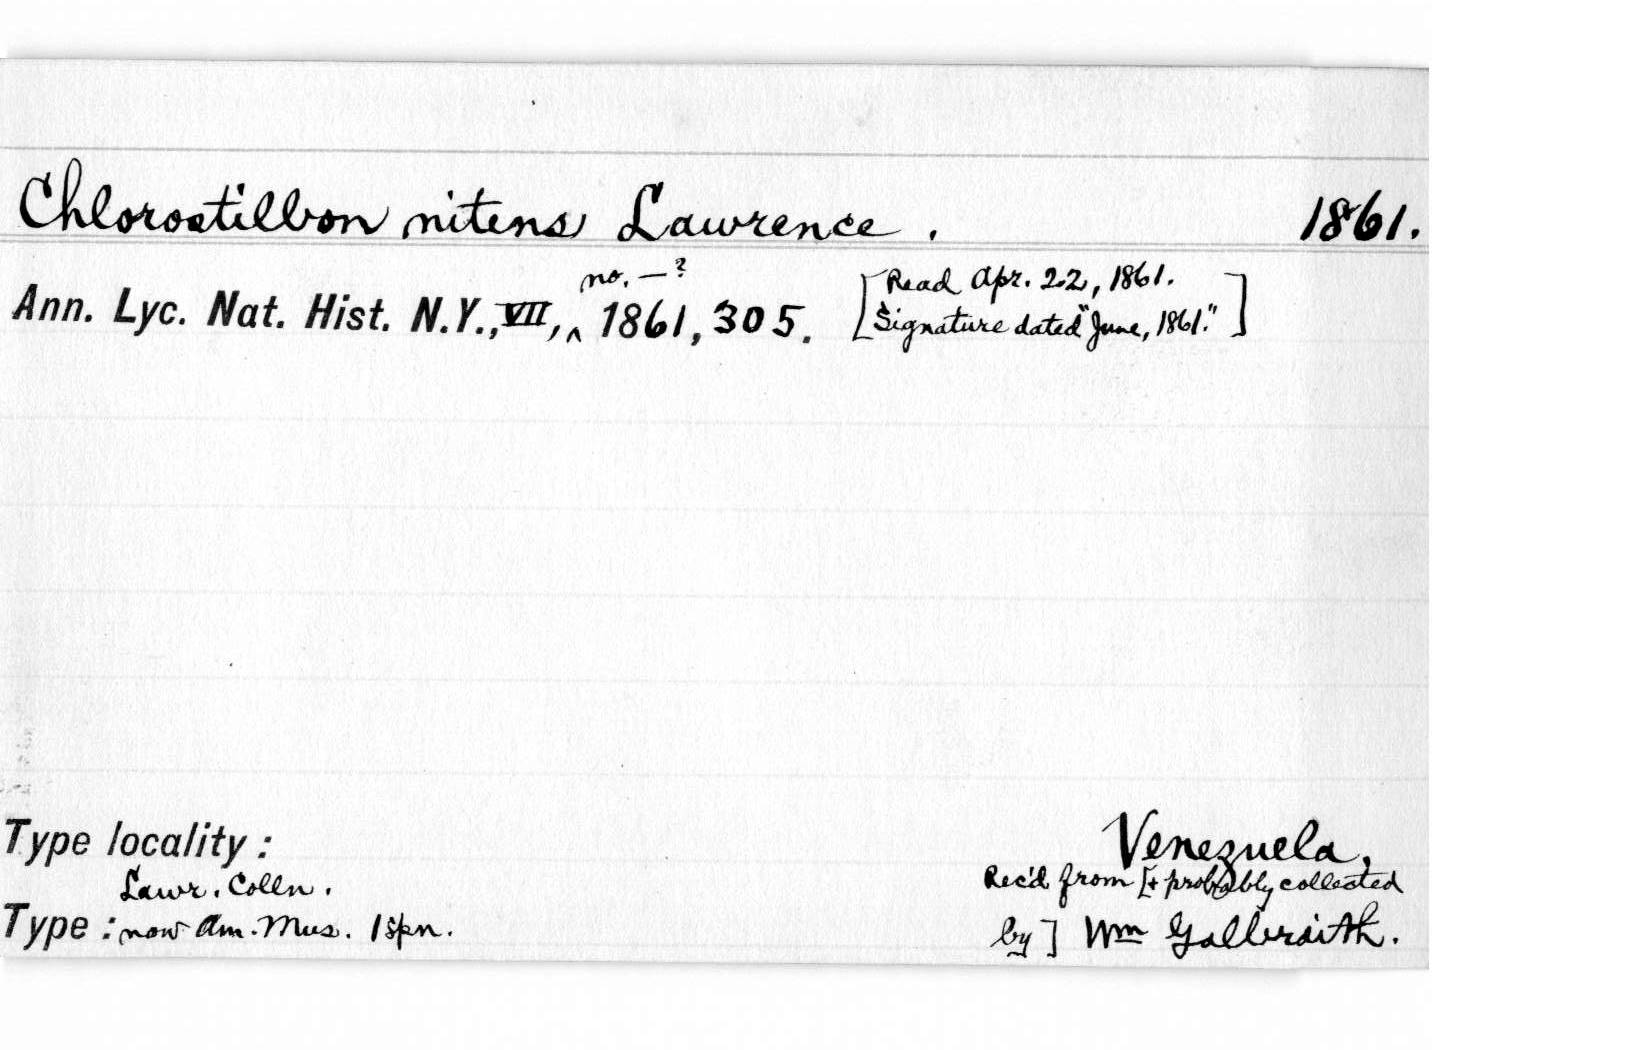 Chlorostilbon nitens Lawrence. 1861.
no. — ?
Ann. Lyc. Nat. Hist. N.Y., VII, ‸ 1861, 305. [Read Apr. 22, 1861.
Signature dated "June, 1861."]
Type locality: Venezuela,
Lawr. Colln. Rec'd from [+ probably collected
Type: now Am. Mus. 1 spn. by] Wm Galbraith.